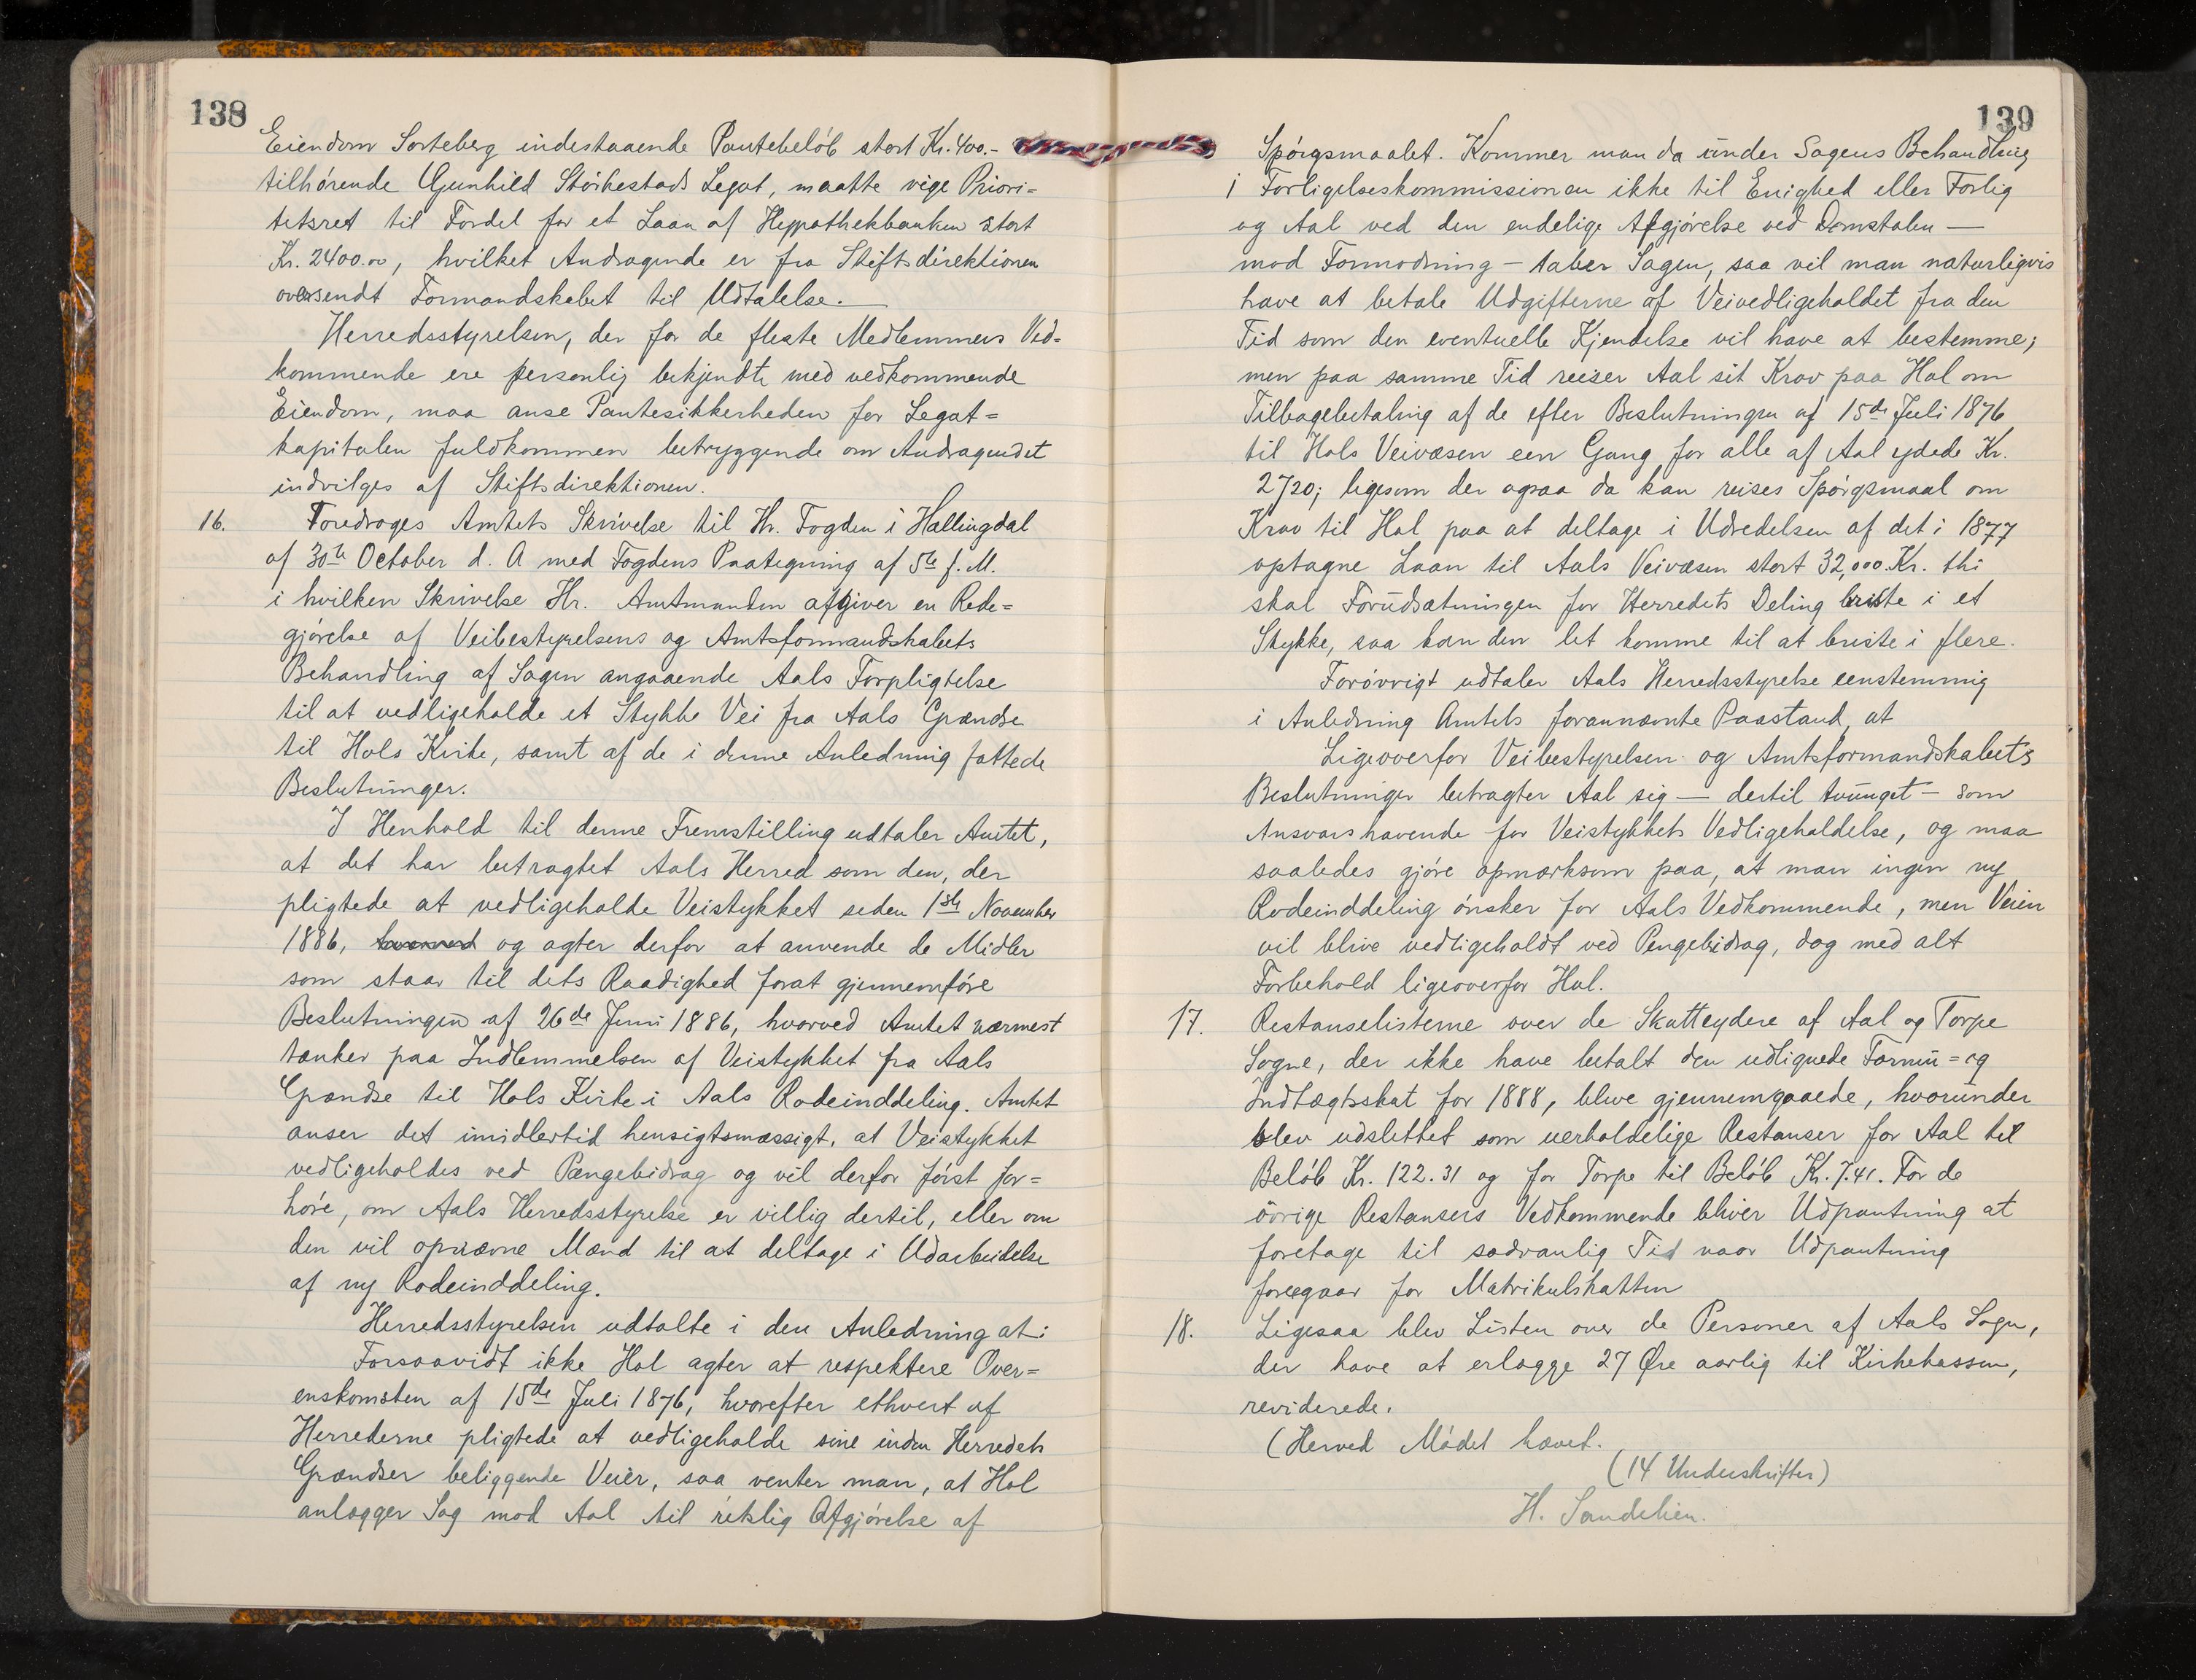 138
Eiendom Sorteberg indestaaende Pantebeløb stort Kr. 400.-
tilhørende Gunhild Störkestads Legat, maatte vige Priori=
tetsret til Fordel for et Laan af Hypothekbanken stort
Kr. 2400.00, hvilket Andragende er fra Stiftsdirektionen
oversendt Formandskabet til Udtalelse.
Herredsstyrelsen, der for de fleste Medlemmers Ved=
kommende ere personlig bekjendte med vedkommende
Eiendom, maa anse Pantesikkerheden for Legat=
kapitalen fuldkommen betryggende om Andragendet
indvilges af Stiftsdirektionen.
16. Foredroges Amtets Skrivelse til Hr. Fogden i Hallingdal
af 30te October d. A med Fogdens Paategning af 5te f. M.
i hvilken Skrivelse Hr. Amtmanden afgiver en Rede=
gjørelse af Veibestyrelsens og Amtsformandskabets
Behandling af Sagen angaaende Aals Forpligtelse
til at vedligeholde et Stykke Vei fra Aals Grændse
til Hols Kirke, samt af de i denne Anledning fattede
Beslutninger.
I Henhold til denne Fremstilling udtaler Amtet,
at det har betragtet Aals Herred som den, der
pligtede at vedligeholde Veistykket siden 1ste November
1886, og agter derfor at anvende de Midler
som staar til dets Raadighed forat gjennemføre
Beslutningen af 26de Juni 1886, hvorved Amtet nærmest
tænker paa Indlemmelsen af Veistykket fra Aals
Grændse til Hols Kirke i Aals Rodeinddeling. Amtet
anser det imidlertid hensigtsmæssigt, at Veistykket
vedligeholdes ved Pengebidrag og vil derfor först for=
høre, om Aals Herredsstyrelse er villig dertil, eller om
den vil opnævne Mænd til at deltage i Udarbeidelse
af ny Rodeinddeling.
Herredsstyrelsen udtalte i den Anledning at:
Forsaavidt ikke Hol agter at respektere Over=
enskomsten af 15de Juli 1876, hvorefter ethvert af
Herrederne pligtede at vedligeholde sine inden Herredets
Grændser beliggende Veier, saa venter man, at Hol
anlægger Sag mod Aal til retslig Afgjørelse af
139
Spörgsmaalet. Kommer man da under Sagens Behandling
i Forligelseskommissionen ikke til Enighed eller Forlig
og Aal ved den endelige Afgjørelse ved Domstolen —
mod Formodning — taber Sagen, saa vil man naturligvis
have at betale Udgifterne af Veivedligeholdet fra den
Tid som den eventuelle Kjendelse vil have at bestemme;
men paa samme Tid reiser Aal sit Krav paa Hol om
Tilbagebetaling af de efter Beslutningen af 15de Juli 1876
til Hols Veivæsen een Gang for alle af Aal ydede Kr.
2720; ligesom der ogsaa da kan reises Spørgsmaal om
Krav til Hol paa at deltage i Udredelsen af det i 1877
optagne Laan til Aals Veivæsen stort 32,000 Kr. thi
skal Forudsætningen for Herredets Deling briste i et
Stykke, saa kan den let komme til at briste i flere.
Forøvrigt udtaler Aals Herredsstyrelse eenstemmig
i Anledning Amtets forannævnte Paastand, at
Ligeoverfor Veibestyrelsen og Amtsformandskabets
Beslutninger betragter Aal sig — dertil tvunget — som
Ansvarshavende for Veistykkets Vedligeholdelse, og maa
saaledes gjøre opmærksom paa, at man ingen ny
Rodeinddeling ønsker for Aals Vedkommende, men Veien
vil blive vedligeholdt ved Pengebidrag, dog med alt
Forbehold ligeoverfor Hol.
17. Restanselisterne over de Skatteydere af Aal og Torpe
Sogne, der ikke have betalt den udlignede Formu= og
Indtægtsskat for 1888, bleve gjennemgaaede, hvorunder
blev udslettet som uerholdelige Restanser for Aal til
Beløb Kr. 122.31 og for Torpe til Beløb Kr. 7.41. For de
övrige Restansers Vedkommende bliver Udpantning at
foretage til sædvanlig Tid naar Udpantning
foregaar for Matrikulskatten
18. Ligesaa blev Listen over de Personer af Aals Sogn,
der have at erlægge 27 Øre aarlig til Kirkekassen,
reviderede.
(Herved Mødet hævet.
(14 Underskrifter)
H. Sandelien.